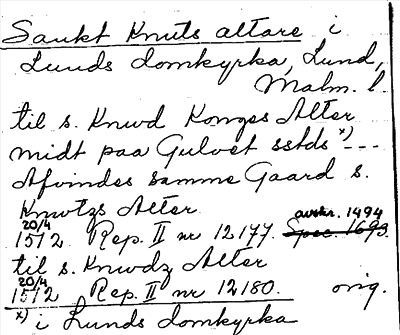 Sankt Knuts altare i
Lunds domkyrka, Lund,
Malm. l.
til s. Knud Konges Alter
midt paa Gulvet sstds x) ---
Afvindes samme Gaard s.
Knutzs Alter
20/4 1512 Rep. II nr 12177. Spec. 1693. avskr. 1494
til s. Knudz Alter
20/4 1512 Rep. II nr 12180. orig.
x) i Lunds domkyrka